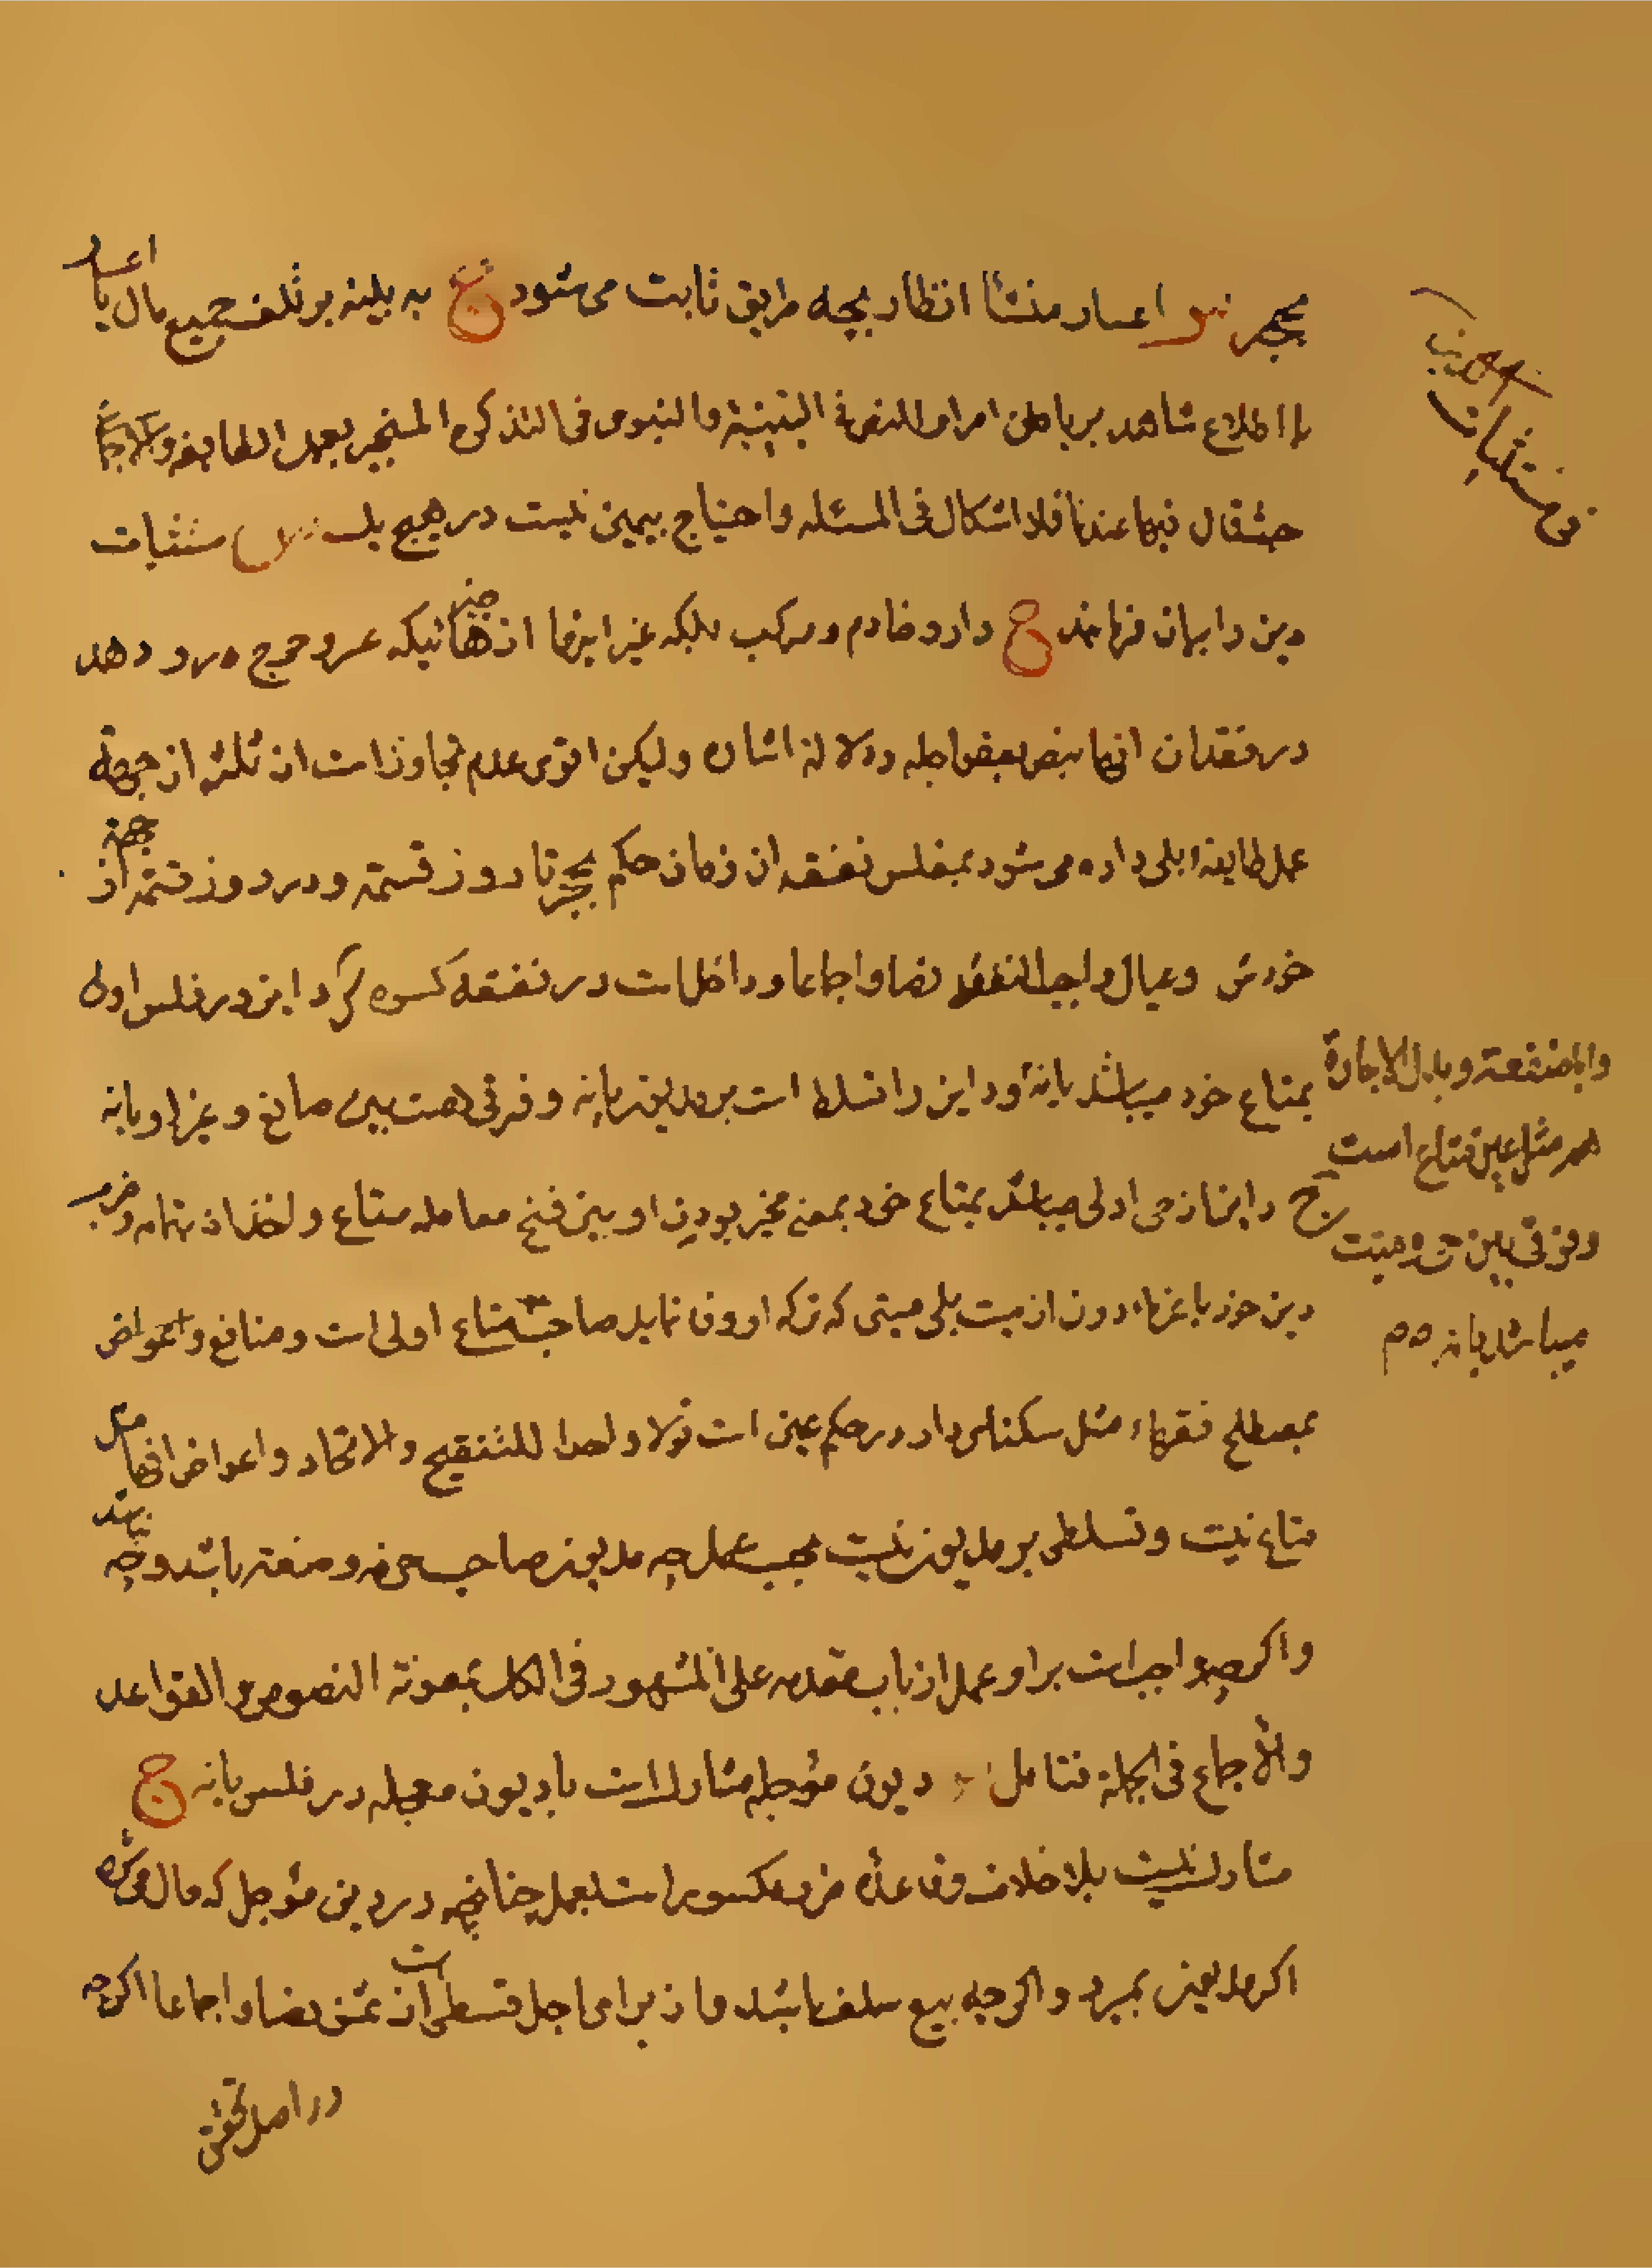 بحجر س اعسار منشأ انظار بچه طریق ثابت می شود ج به بینه بر تلف جمیع مال یا اعسار
با اطلاع شاهد بر باطن امر او للنصرة البینة والنبوی فی التذکرة المنجبر بعمل الطایفه والاجماع
حیث قال فیها عندنا فلا اشکال فی المسئله واحتیاج بیمین نیست در هیچ یک س مستثنیات
دین را بیان فرمایند ج دار وخادم ومرکب بلکه غیر اینها از چیزهائیکه عسر وحرج رو دهد
در فقدان انها بنص بعض اجله ودلالة اشاره ولیکن اقوی عدم تجاوز است از ثلثه از جهة
عمل طایفه بلی داده می شود بمفلس نفقه از زمان حکم بحجر تا روز قسمته ودر روز قسمته از جهة
خودش وعیال واجب النفقه نصا واجماعا وداخل است در نفقه کسوه س کرد این در فلس اولی
بمتاع خود میباشد یا نه واین را تسلط است بر مدیون یا نه وفرقی هست بین صانع وغیر او یا نه
ج داین از حی اولی میباشد بمتاع خود بمعنی مخیر بودن او بین فسخ معامله متاع واخذ ان بتمامه وضرب
دین خود با غرماء دون از میت بلی میتی که ترکه او وفا نماید صاحب متاع اولی است ومنافع واعواض
بمصطلح فقهاء مثل سکنای دار در حکم عین است قولا واحدا للتنقیح والاتحاد واعواض انها مثل
متاع نیست وتسلطی بر مدیون نیست بحسب عمل چه مدیون صاحب حرفه وصنعته باشد وچه نباشد
واگر چه واجب است بر او عمل از باب مقدمه علی المشهور فی الکل بمعونة النصوص والقواعد
والأجماع فی الجملة فتامل س دیون مؤجله مشارک است با دیون معجله در فلس یا نه ج
مشارک نیست بلا خلاف وقاعده ضرب وکسور است بعمل چنانچه در دین مؤجل که مال می شود
اگر مدیون بمیرد واگر چه بیع سلف باشد وما زبرای اجل قسطی است از ثمن نصا واجماعا اگر چه
در اصل تحقق
فی مستثنیات
وایا منفعته وبدل الاجارة
هم مثل عین متاع است
وفرقی بین حی ومیت
میباشد یا نه م م